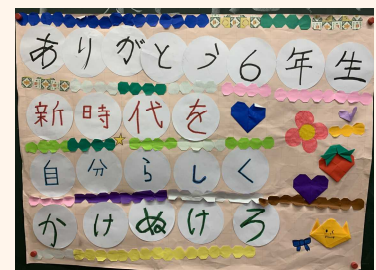 ありがとう6年生
新時代を
自分らしく
かけぬけろ